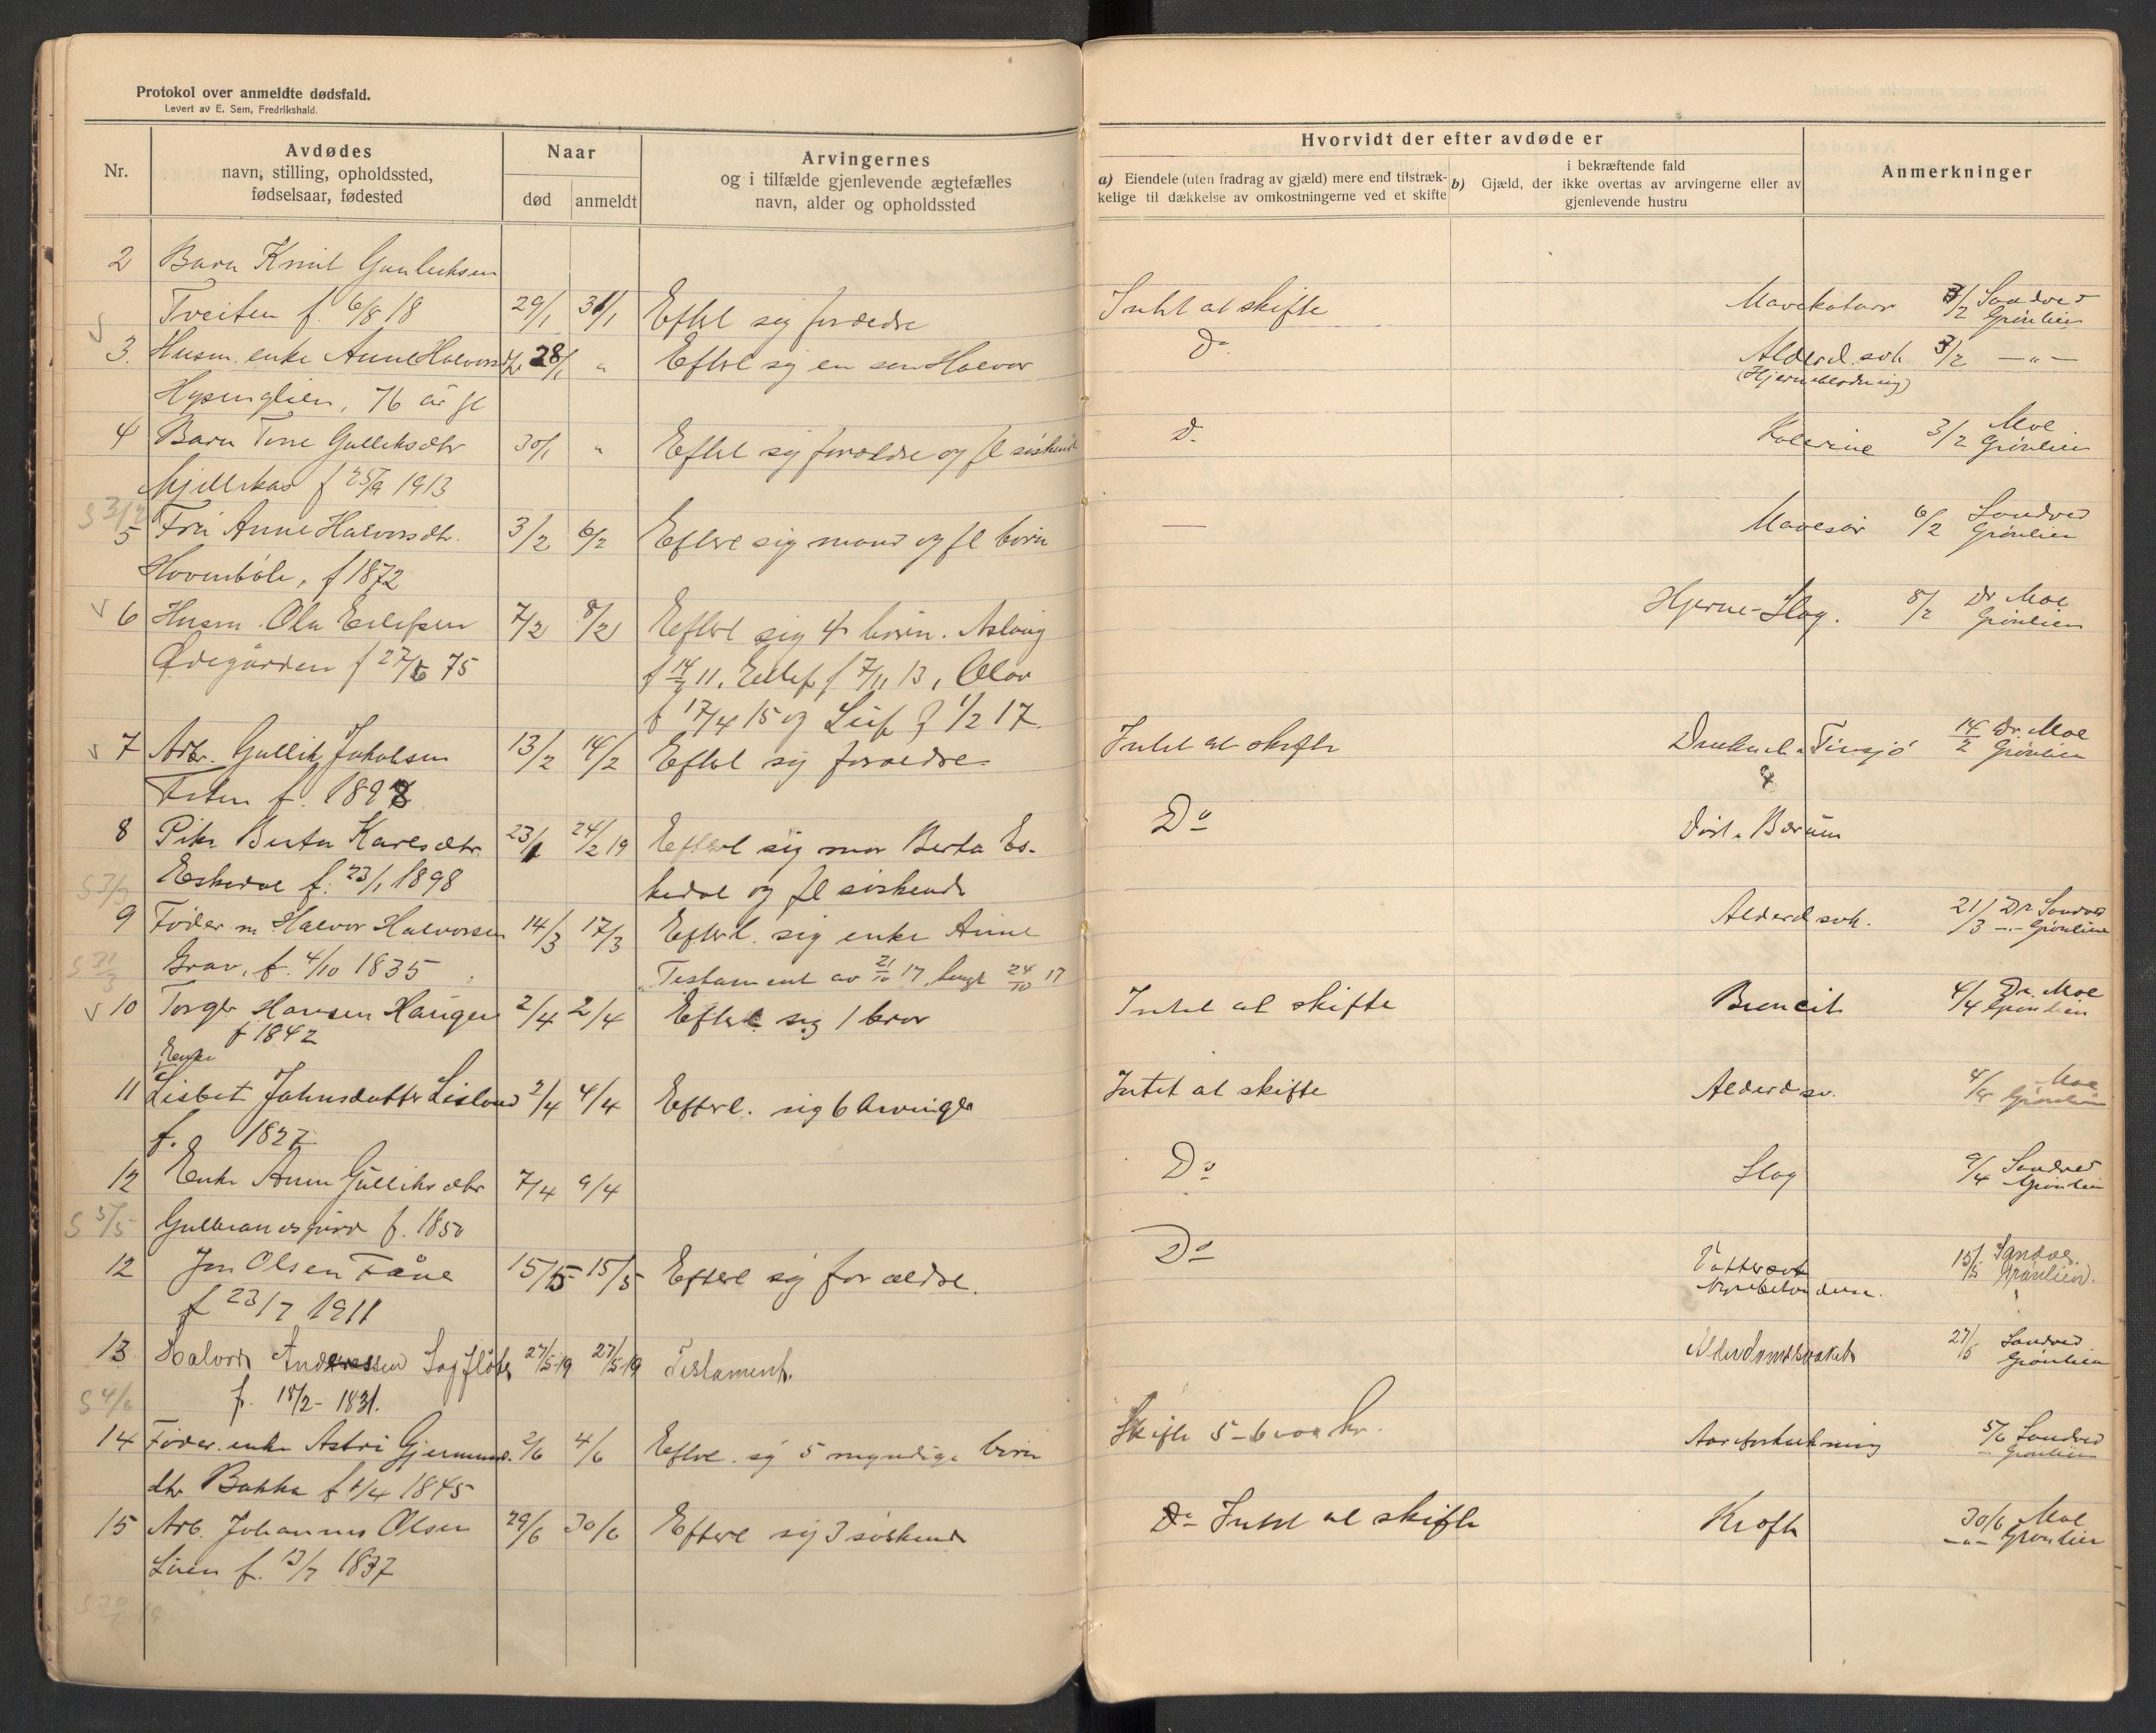 Protokol over anmeldte dødsfald.
Levert av E. Sem, Fredrikshald.
Nr.
Avdødes
navn, stilling, opholdssted,
fødselsaar, fødested
Naar
død
anmeldt
Arvingernes
og i tilfælde gjenlevende ægtefælles
navn, alder og opholdssted
Hvorvidt der efter avdøde er
a) Eiendele (uten fradrag av gjæld) mere end tilstræk-
kelige til dækkelse av omkostningerne ved et skifte
i bekræftende fald
b) Gjæld, der ikke overtas av arvingerne eller av
gjenlevende hustru
Anmerkninger
2 Barn Knut Gunleiksen
Tveiten f. 6/8 18 29/1 31/1 Efterl sig forældre Intet at skifte Mavekatarr 3/2 Sandved
Grønlien
3. Husm. enke Anne Halvorsdtr 28/1 " Efterl sig en søn Halvor Do Alderd. svk 3/2 — " —
(Hjerneblødning)
76 år gl
4 Barn Tone Galleiksdtr 30/1 " Efterl sig forældre og fl søskend D. Kolerine 3/2 Moe
Grønlien
f 25/9 1913
S 3/2
5 Fru Anne Halvorsdtr. 3/2 6/2 Efterl sig mand og fl børn — Mavesår 6/2 Sandved
Grønlien
Hovenbøle, f 1872
6 Husm. Ola Eilefsen 7/2 8/2 Efterl sig 4 børn. Aslaug Hjerne-Slag. 8/2 Dr Moe
Grønlien
Ødegården f 27/6 75 f 14/7 11, Eilef f 7/11 13, Olav
f 17/4 15 og Leif f 1/2 17.
7 Arb. Gullik Jakobsen 13/2 14/2 Efterl sig forældre Intet at skifte Druknet i Tinsjø 14/2 Dr. Moe
Grønlien
f. 1898
8 Pike Berta Karesdtr. 23/1 24/2 19 Efterl sig mor Berta Es- Do Død i Bærum
Eskedal f. 23/1 1898 kedal og fl søskende
9 Føder. m. Halvor Halvorsen 14/3 17/3 Efterl. sig enke Anne Alderd svk. 21/3 Dr Sandved
—"— Grønlien
Grav, f. 4/10 1835 Testament av 21/10 17, 24/10 17
S 21/3
10 Torger Hansen Haugen 2/4 2/4 Efterl. sig 1 bror Intet at skifte 4/4 Dr. Moe
Grønlien
f 1842
Enke
11 Lisbet Johnsdatter Lisland 2/4 4/4 Efterl. sig 6 Arvinger Intet at skifte Alderdsv. 4/4 Moe
Grønlien
f. 1827
12 Enke Anne Gulliksdtr 7/4 9/4 Do Slag 9/4 Sandved
Grønlien
S 5/5 Gulbrandsgård f. 1850
12 Jon Olsen Fåne 15/5 15/5 Efterl sig forældre. Do Vattersot 15/5 Sandve.
Nyrebetændelse. Grønlien.
f 23/7 1911
13 Halvor Andreassen 27/5-19 27/5-19 Testament. Alderdomssvakhet 27/5 Sandved
Grønlien
S 4/6 f. 18/2- 1831.
14 Føder. enke Astri Gjermund. 2/6 4/6 Efterl. sig 5 myndige børn Skifte 5-6000 kr. Aareforkalkning 5/6 Sandved
Grønlien
dtr Bakka f 1/4 1845
15 Arb. Johannes Olsen 29/6 30/6 Efterl sig 3 søskend Do Intet at skifte Kræft 30/6 Moe
—"— Grønlien
f. 13/7 1837